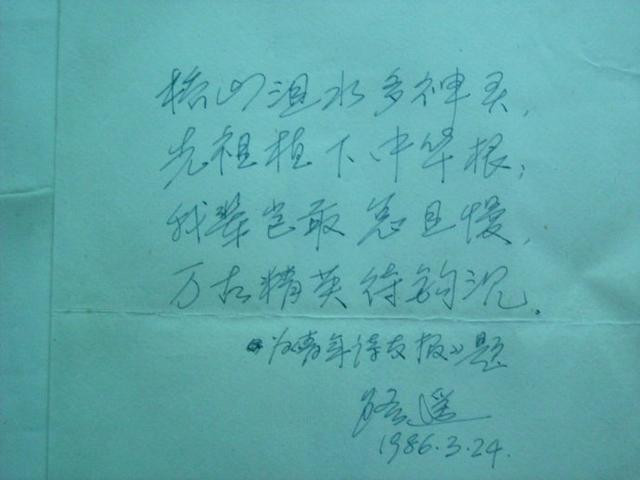 桥山沮水多神灵，
先祖植下中华根；
我辈岂敢怠且慢，
万古精英待钩沉。
《为青年诗友报》题
路遥
1986.3.24.